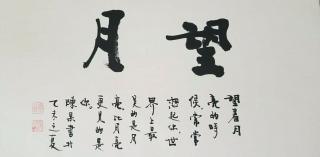 望月
望着月
亮的時
候常常
想起你世
界上最
美的是月
亮比月亮
更美的是
你
陳書於
乙未之夏